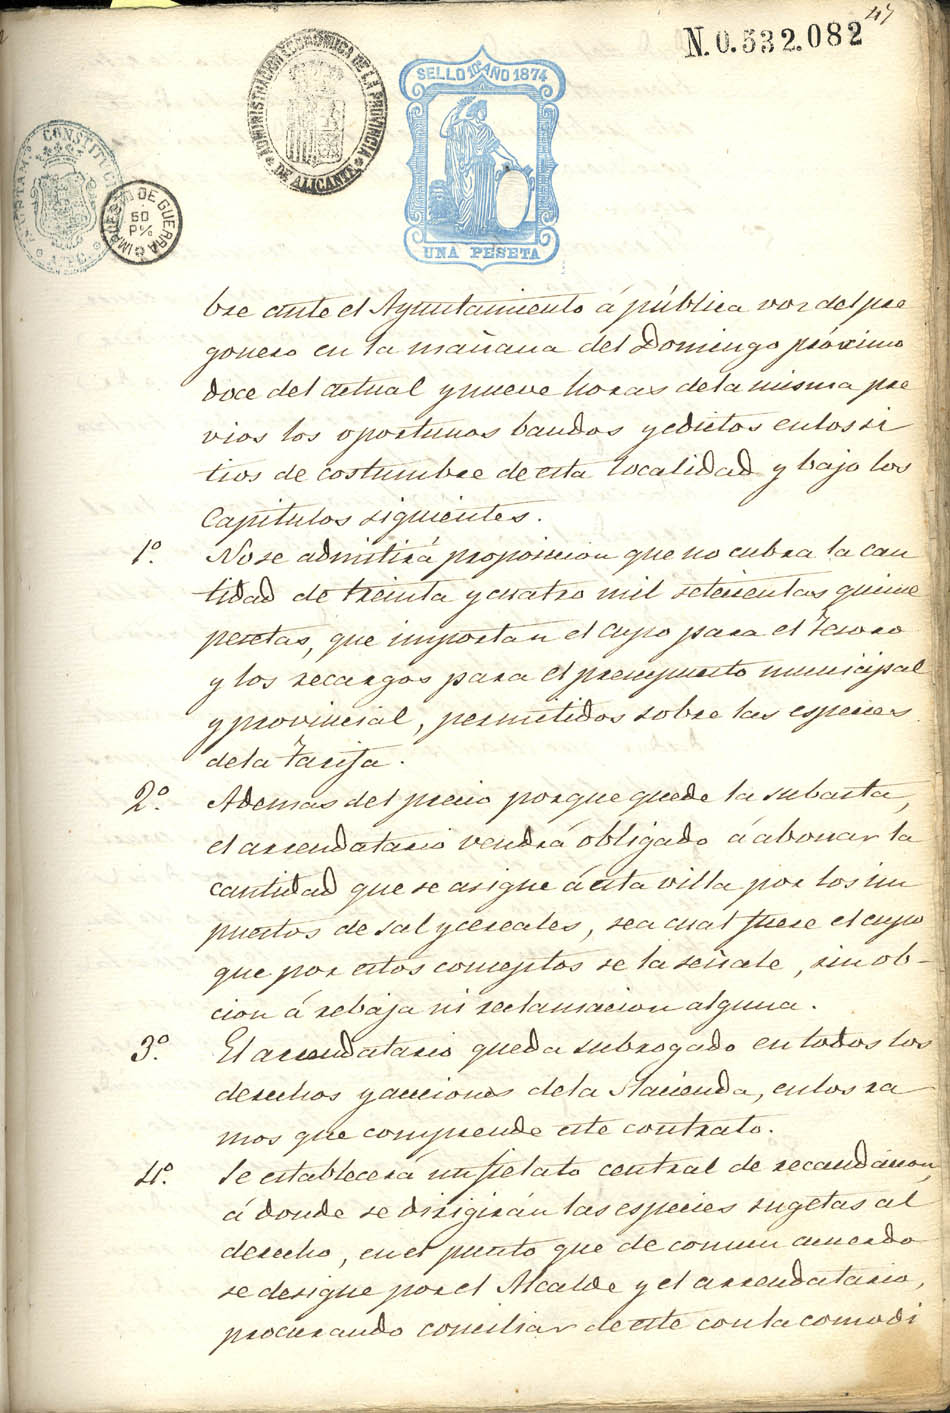 47
N.0.532.082
ADMINISTRACION ECONOMICA DE LA PROVINCIA
DE ALICANTE
SELLO 10º AÑO 1874
UNA PESETA
CONSTITUC
IMPUESTO DE GUERRA
50
Pˢ/ₒ
bre ante el Ayuntamiento á pública voz del pre
gonero en la mañana del Domingo próximo
doce del actual y nueve horas de la misma pre
vios los oportunos bandos y edictos en los si
tios de costumbre de esta localidad y bajo los
Capitulos siguientes.
1º. No se admitirá proposicion que no cubra la can
tidad de treinta y cuatro mil setecientas quince
pesetas, que importan el cupo para el Tesoro
y los recargos para el presupuesto municipal
y provincial, permitidos sobre las especies
de la Tarifa.
2º. Ademas del precio porque quede la subasta,
el arrendatario vendrá obligado á abonar la
cantidad que se asigne á esta villa por los im
puestos de sal y cereales, sea cual fuere el cupo
que por estos conceptos se la señale, sin ob-
cion á rebaja ni reclamacion alguna.
3º. El arrendatario queda subrogado en todos los
derechos y acciones de la Hacienda, en los ra
mos que comprende este contrato.
4º. Se establecerá un fielato central de recaudacion,
á donde se dirigirán las especies sugetas al
derecho, en el punto que de comun acuerdo
se designe por el Alcalde y el arrendatario,
procurando conciliar de este con la comodi